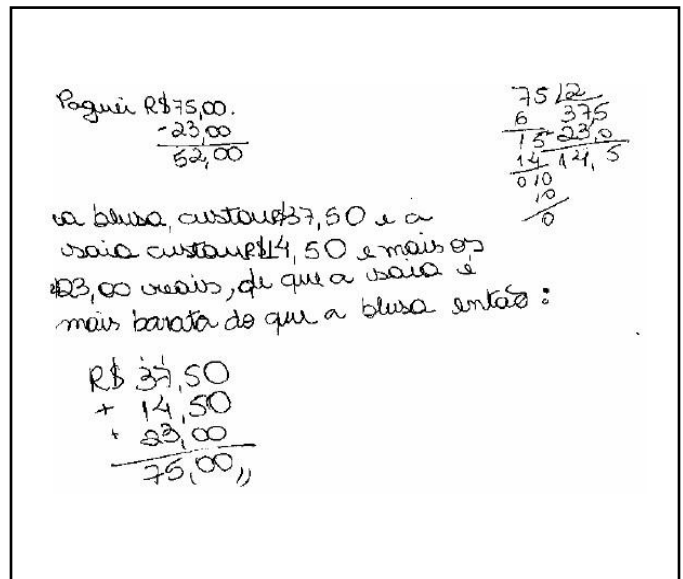 Paguei R$75,00.
-23,00
52,00
75 2
6 375
15 -23,0
14 14,5
010
10
0
a blusa, custou R$37,50 e a
saia custou R$14,50 e mais os
R$23,00 reais, de que a saia é
mais barata do que a blusa então:
R$ 37,50
+ 14,50
+ 23,00
75,00,,